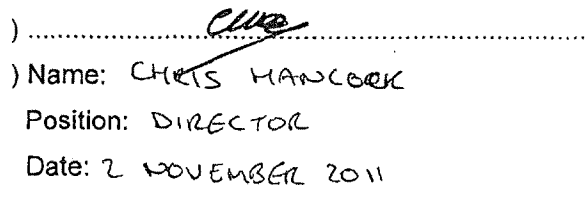 ) ........................................
) Name: CHRIS HANCOCK
Position: DIRECTOR
Date: 2 NOVEMBER 2011